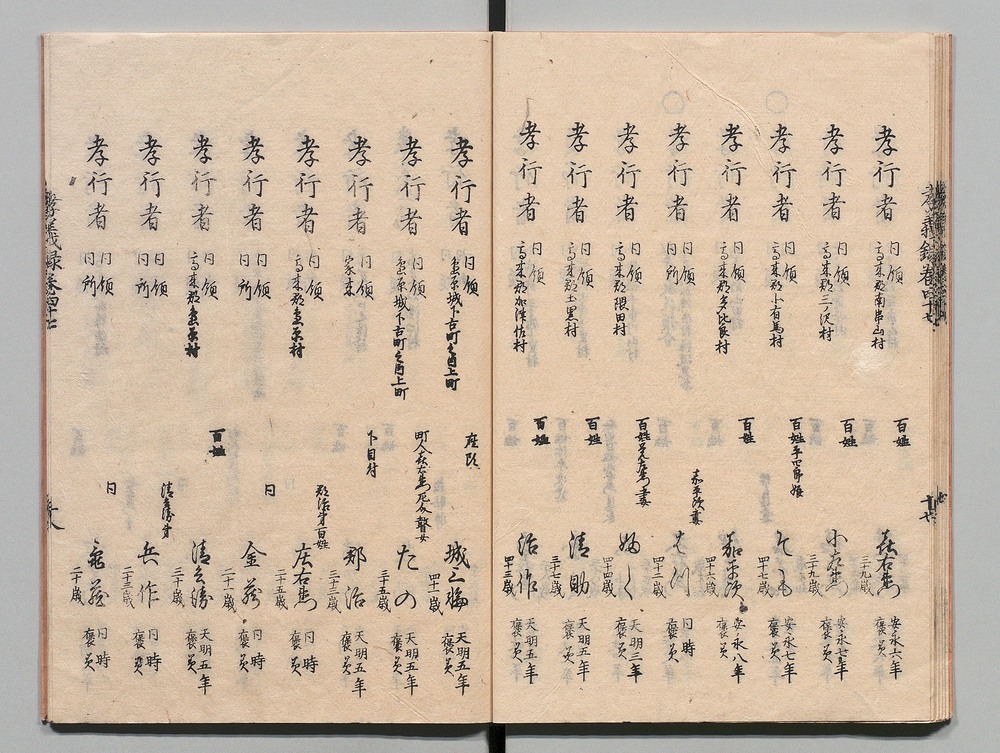 孝義録巻四十七
孝行者 同領 高来郡南串山村 百姓 喜右衛門 三十九歳 安永六年 褒美
孝行者 同領 高来郡三ノ沢村 百姓 小左衛門 三十九歳 安永七年 褒美
孝行者 同領 高来郡小有馬村 百姓平四郎娘 そも 四十七歳 安永七年 褒美
孝行者 同領 高来郡多比良村 百姓 嘉平次 四十六歳 安永八年 褒美
孝行者 同領 同所 嘉平次妻 四十二歳 同時 褒美
孝行者 同領 高来郡隈田村 妻 四十四歳 天明三年 褒美
孝行者 同領 高来郡土黒村 百姓 清助 三十七歳 天明五年 褒美
孝行者 同領 高来郡加津佐村 百姓 治作 四十三歳 天明五年 褒美
孝行者 同領 島原城下古町之内上町 座頭 城三梅 四十一歳 天明五年 褒美
孝行者 同領 島原城下古町之内上町 瞽女 たの 三十五歳 天明五年 褒美
孝行者 同領 家来 下目付 郡治 三十三歳 天明五年 褒美
孝行者 同領 高来郡島原村 郡治弟百姓 庄右衛門 二十五歳 同時 褒美
孝行者 同領 同所 同 金蔵 二十一歳 同時 褒美
孝行者 同領 高来郡島原村 百姓 清勝 三十歳 天明五年 褒美
孝行者 同領 同所 清勝弟 兵作 二十三歳 同時 褒美
孝行者 同領 同所 同 亀蔵 二十歳 同時 褒美
孝義録巻四十七